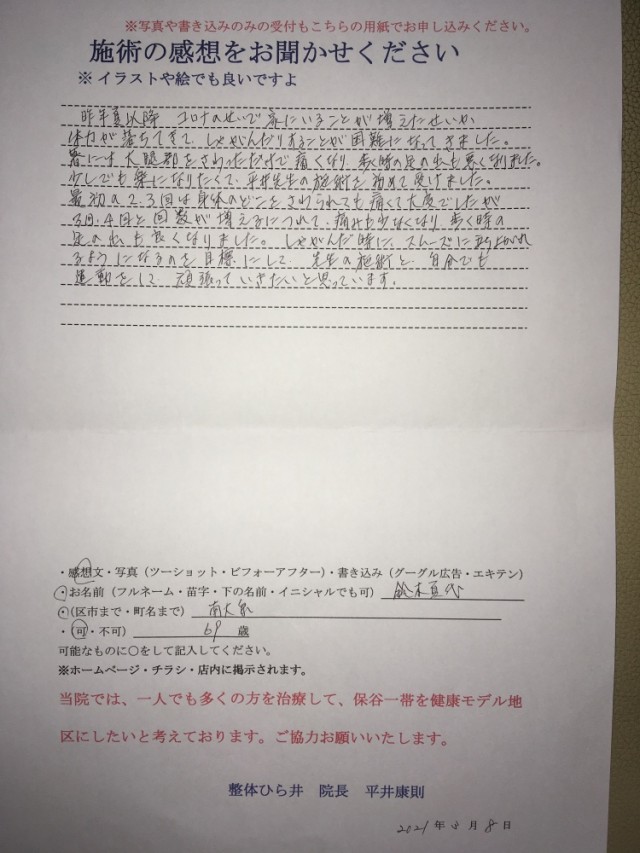 ※写真や書き込みのみの受付もこちらの用紙でお申し込みください。
施術の感想をお聞かせください
※ イラストや絵でも良いですよ
昨年夏以降 コロナのせいで家にいることが増えたせいか
体力が落ちてきて、しゃがんだりすることが困難になってきました。
春には大腿部をさわっただけで痛くなり、歩く時の足の出も悪くなりました。
少しでも楽になりたくて、平井先生の施術を初めて受けました。
最初の2、3回は身体のどこをさわられても痛くて大変でしたが
3回、4回と回数が増えるにつれて、痛みも少なくなり、歩く時の
足の出も良くなりました。しゃがんだ時に、スムーズに立ち上がれ
るようになるのを目標にして、先生の施術と、自分でも
運動をして、頑張っていきたいと思っています。
・感想文・写真（ツーショット・ビフォーアフター）・書き込み（グーグル広告・エキテン）
・お名前（フルネーム・苗字・下の名前・イニシャルでも可） 鈴木
・(区市まで・町名まで） 南大泉
・（可・不可） 69 歳
可能なものに○をして記入してください。
※ホームページ・チラシ・店内に掲示されます。
当院では、一人でも多くの方を治療して、保谷一帯を健康モデル地
区にしたいと考えております。ご協力お願いいたします。
整体ひら井 院長 平井康則
2021 年 月 8 日